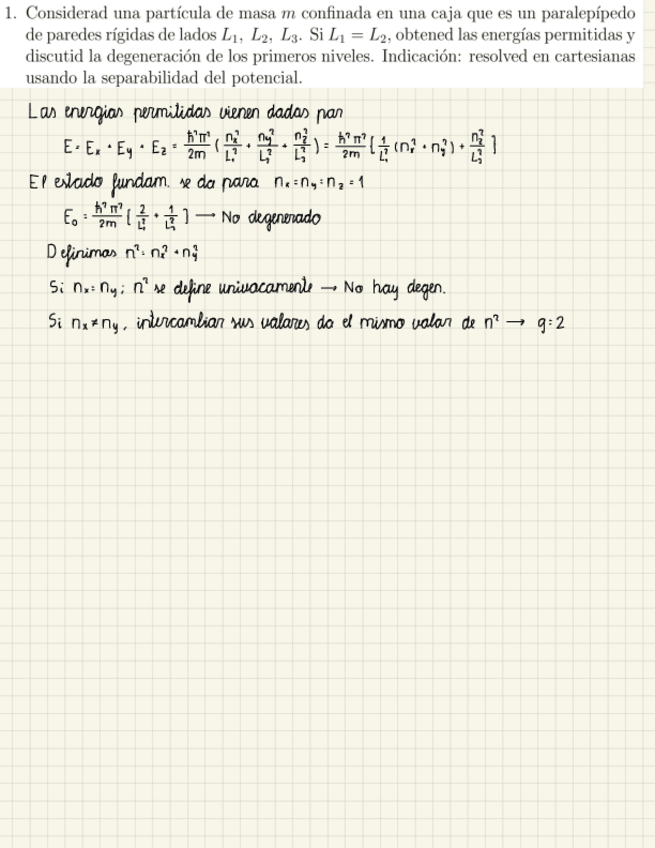 1. Considerad una partícula de masa m confinada en una caja que es un paralepípedo
de paredes rígidas de lados L₁, L₂, L₃. Si L₁ = L₂, obtened las energías permitidas y
discutid la degeneración de los primeros niveles. Indicación: resolved en cartesianas
usando la separabilidad del potencial.
Las energias permitidas vienen dadas por
E = Eₓ + E_y + E_z = ħ²π²/2m (nₓ²/L₁² + n_y²/L₂² + n_z²/L₃²) = ħ²π²/2m [1/L₁² (nₓ² + n_y²) + n_z²/L₃²]
El estado fundam. se da para nₓ = n_y = n_z = 1
E₀ = ħ²π²/2m [2/L₁² + 1/L₃²] → No degenerado
Definimos n² = nₓ² + n_y²
Si nₓ = n_y ; n² se define univocamente → No hay degen.
Si nₓ ≠ n_y , intercambiar sus valores da el mismo valor de n² → g = 2